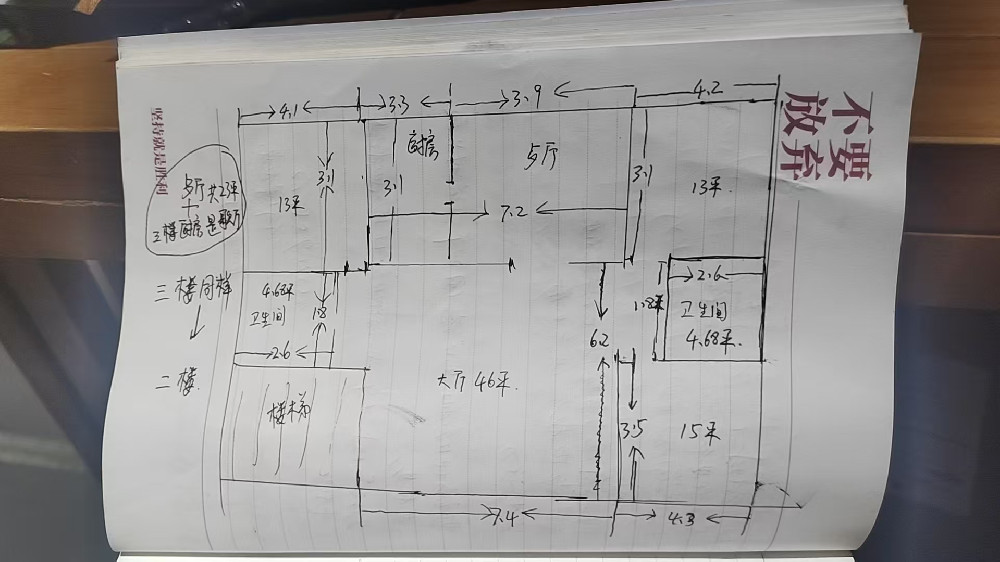 4.1
3.3
3.9
4.2
不要
放弃
坚持就是胜利
厨房
3.1
3.1
与厅
3.1
13平
13平.
7.2
与厅共23平
+
三楼厨房是
三楼同样
二楼.
4.68平
卫生间
1.8
2.6
6.2
1.8平
2.6
卫生间
4.68平.
楼梯
大厅46平.
3.5
15平
7.4
4.3